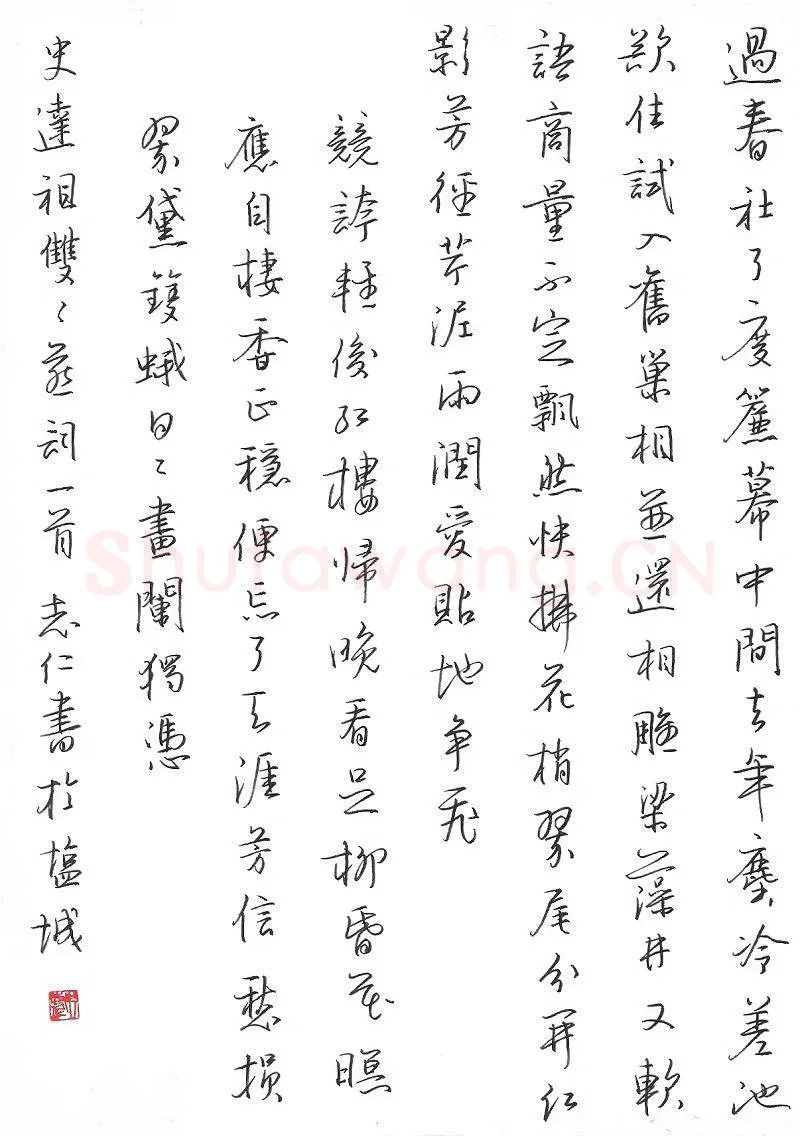 過春社了度簾幕中間去年塵冷差池
欲住試入舊巢相並還相雕梁藻井又軟
語商量不定飄然快拂花梢翠尾分開紅
影芳徑芹泥雨潤愛貼地爭飛
競誇輕俊紅樓歸晚看足柳昏花暝
應自棲香正穩便忘了天涯芳信愁損
翠黛雙蛾日〻畫闌獨憑
史達祖雙〻燕詞一首 志仁書於塩城
Shufawang.CN